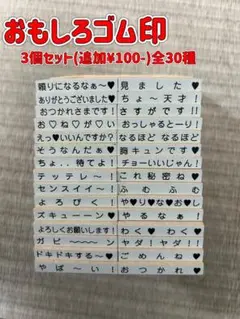 おもしろゴム印
3個セット(追加¥100-)全30種
頼りになるなぁ〜♥
ありがとうございました♥
おつかれさまです！
お♡ね♡が♡い
えっ♥いいんですか？
そうなんだぁ♥
ちょ．．待てよ！
テッテレ〜！
センスイイ〜！
よろぴく！
ズキューーーン♥
よろしくお願いします！
ガビ〜〜〜〜ン
ドキドキする〜♥
やば〜い！
見ました♥
ちょ〜天才！
さすがです!!
おっしゃるとーり！
なるほど なるほど
胸キュンです♥
チョーいいじゃん！
これ秘密ね♥
ふむふむ
や♥り♥な♥お♥し
やるなぁ！
わく♥わく♥
ヤダ！ヤダ!!
ごめんね♥
おつかれ♥